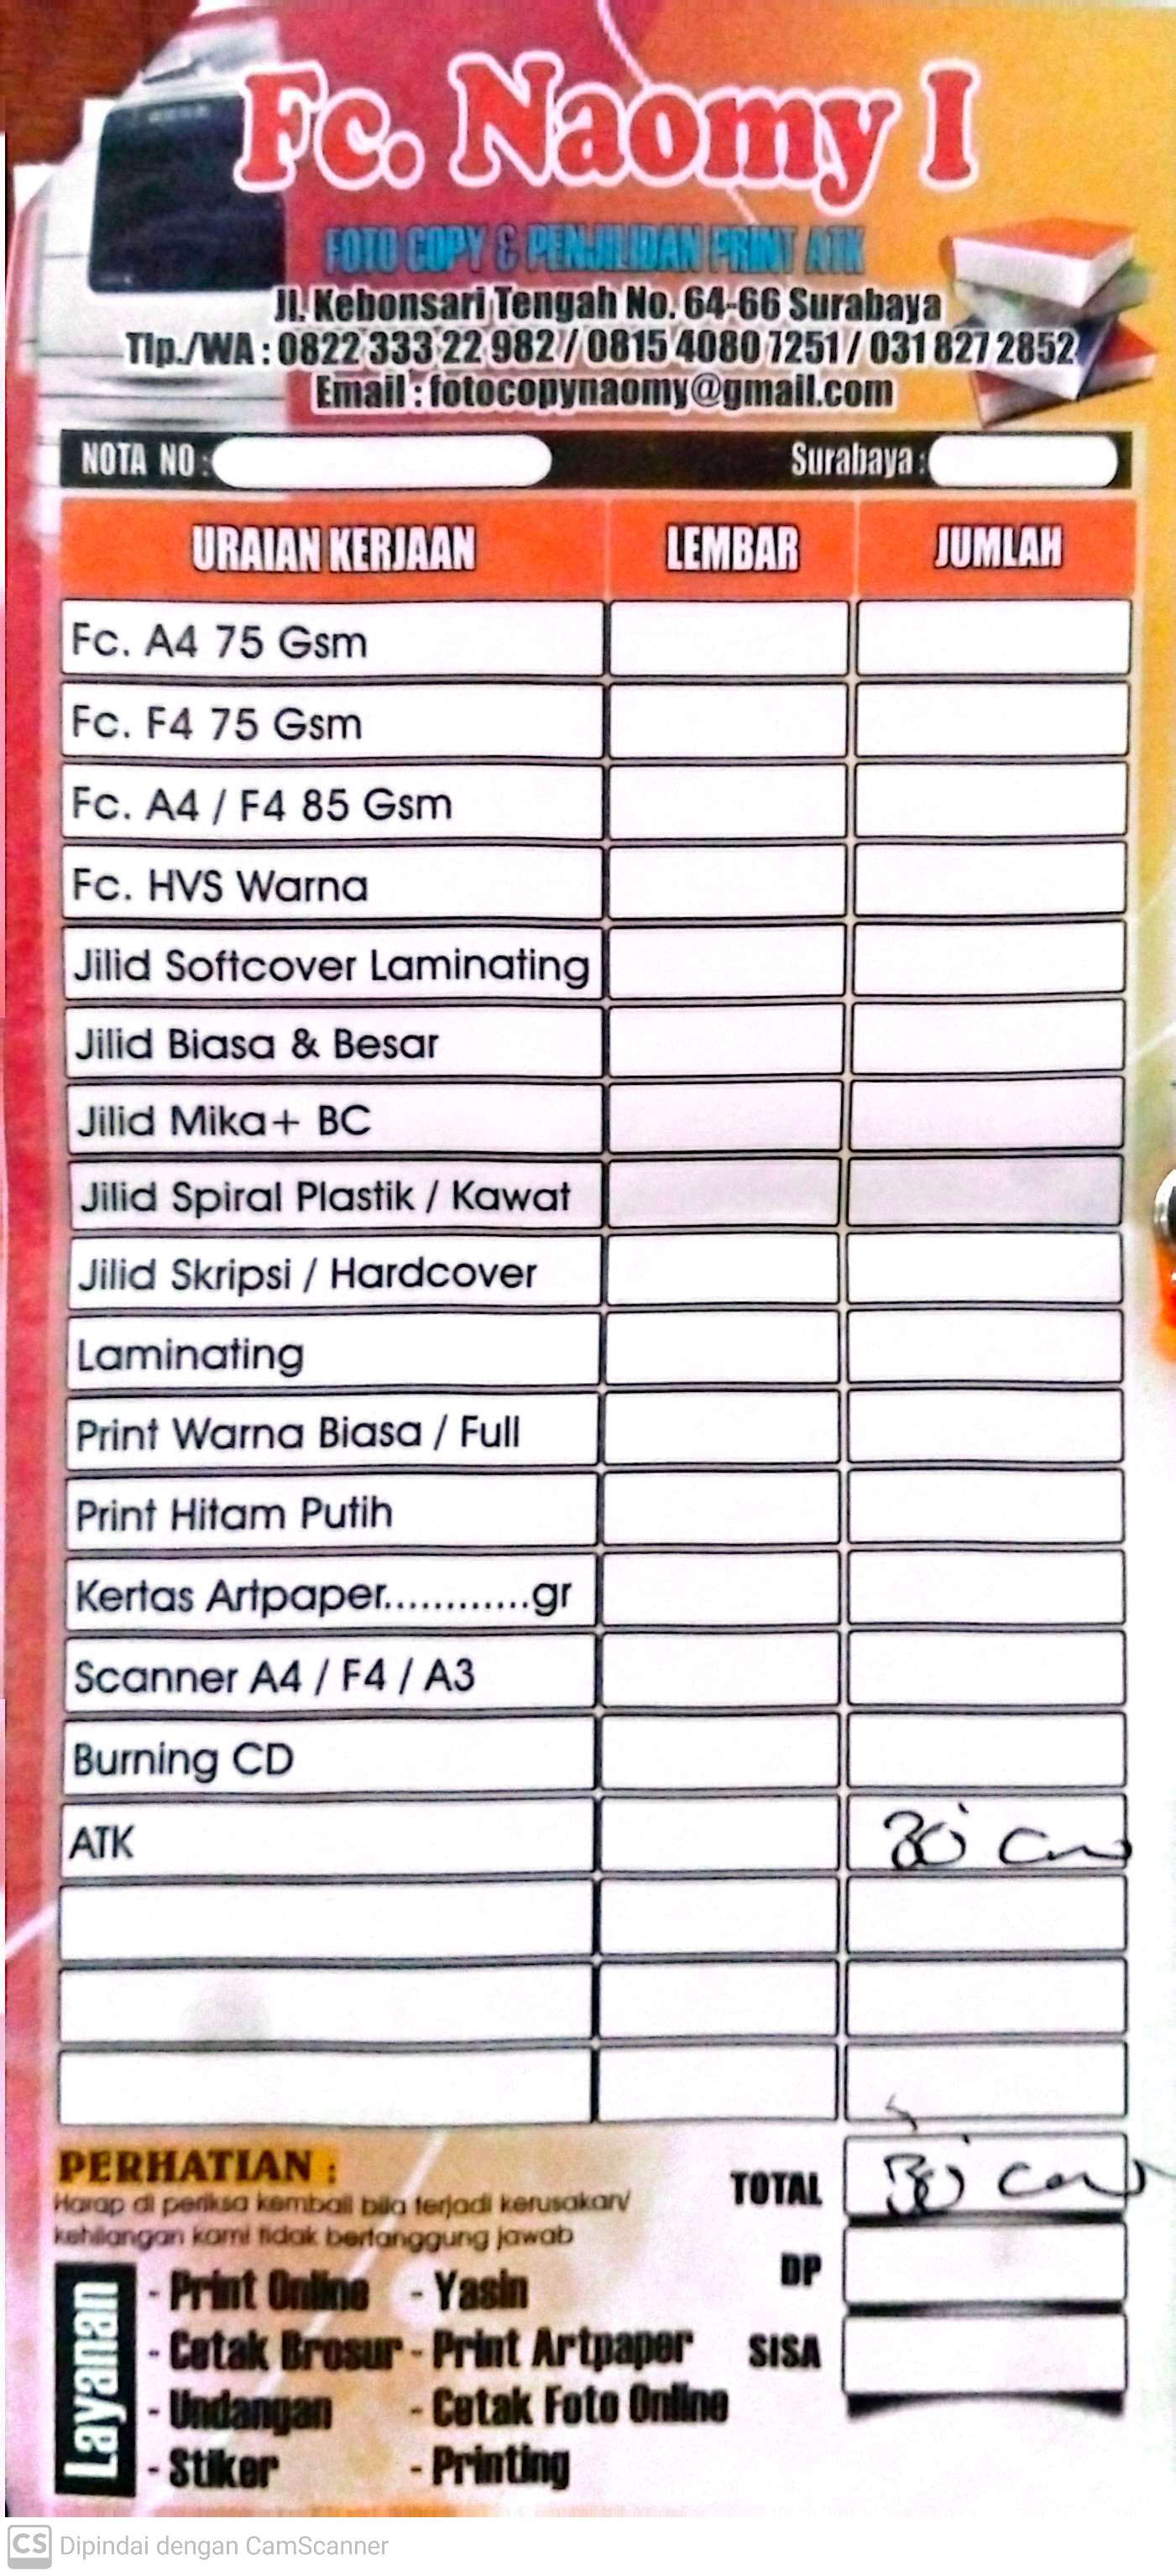 Fc. Naomy I
FOTO COPY & PENJILIDAN PRINT ATK
Jl. Kebonsari Tengah No. 64-66 Surabaya
Tlp./WA : 0822 333 22 982 / 0815 4080 7251 / 031 827 2852
Email : fotocopynaomy@gmail.com
NOTA NO : Surabaya :
URAIAN KERJAAN LEMBAR JUMLAH
Fc. A4 75 Gsm
Fc. F4 75 Gsm
Fc. A4 / F4 85 Gsm
Fc. HVS Warna
Jilid Softcover Laminating
Jilid Biasa & Besar
Jilid Mika+ BC
Jilid Spiral Plastik / Kawat
Jilid Skripsi / Hardcover
Laminating
Print Warna Biasa / Full
Print Hitam Putih
Kertas Artpaper............gr
Scanner A4 / F4 / A3
Burning CD
ATK
PERHATIAN :
Harap di periksa kembali bila terjadi kerusakan/
kehilangan kami tidak bertanggung jawab
TOTAL
DP
SISA
Layanan
- Print Online - Yasin
- Cetak Brosur - Print Artpaper
- Undangan - Cetak Foto Online
- Stiker - Printing
CS Dipindai dengan CamScanner